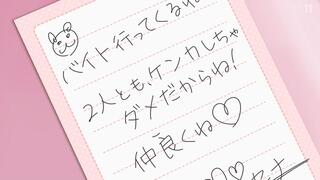 バイト行ってくるね
2人とも、ケンカしちゃ
ダメだからね!
仲良くね♡